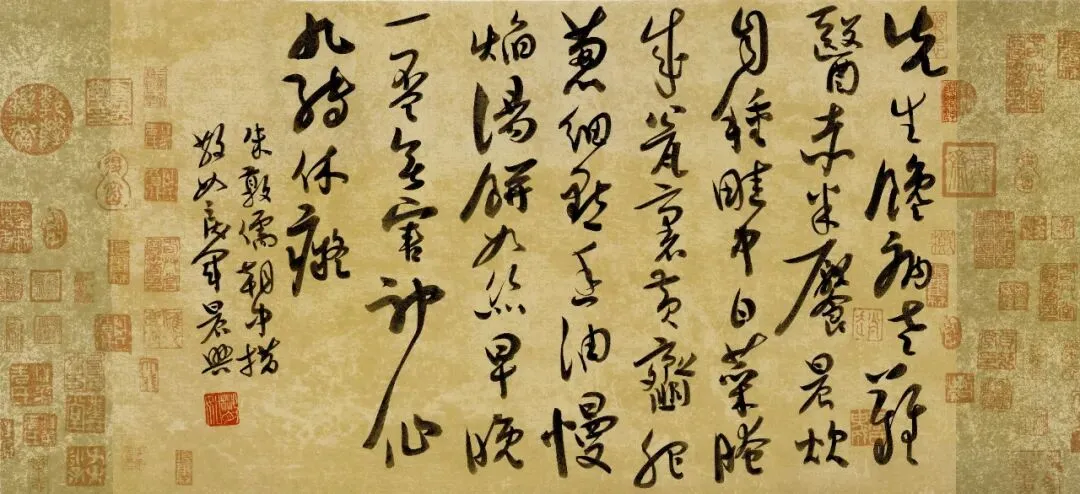 先生饞病老難
醫赤米饜晨炊
自種畦中白菜腌
成瓮裏黃齏肥
蔥細點香油慢
焰湯餅如絲早晚
一盃無害神仙
九轉休癡
朱敦儒朝中措
晨興